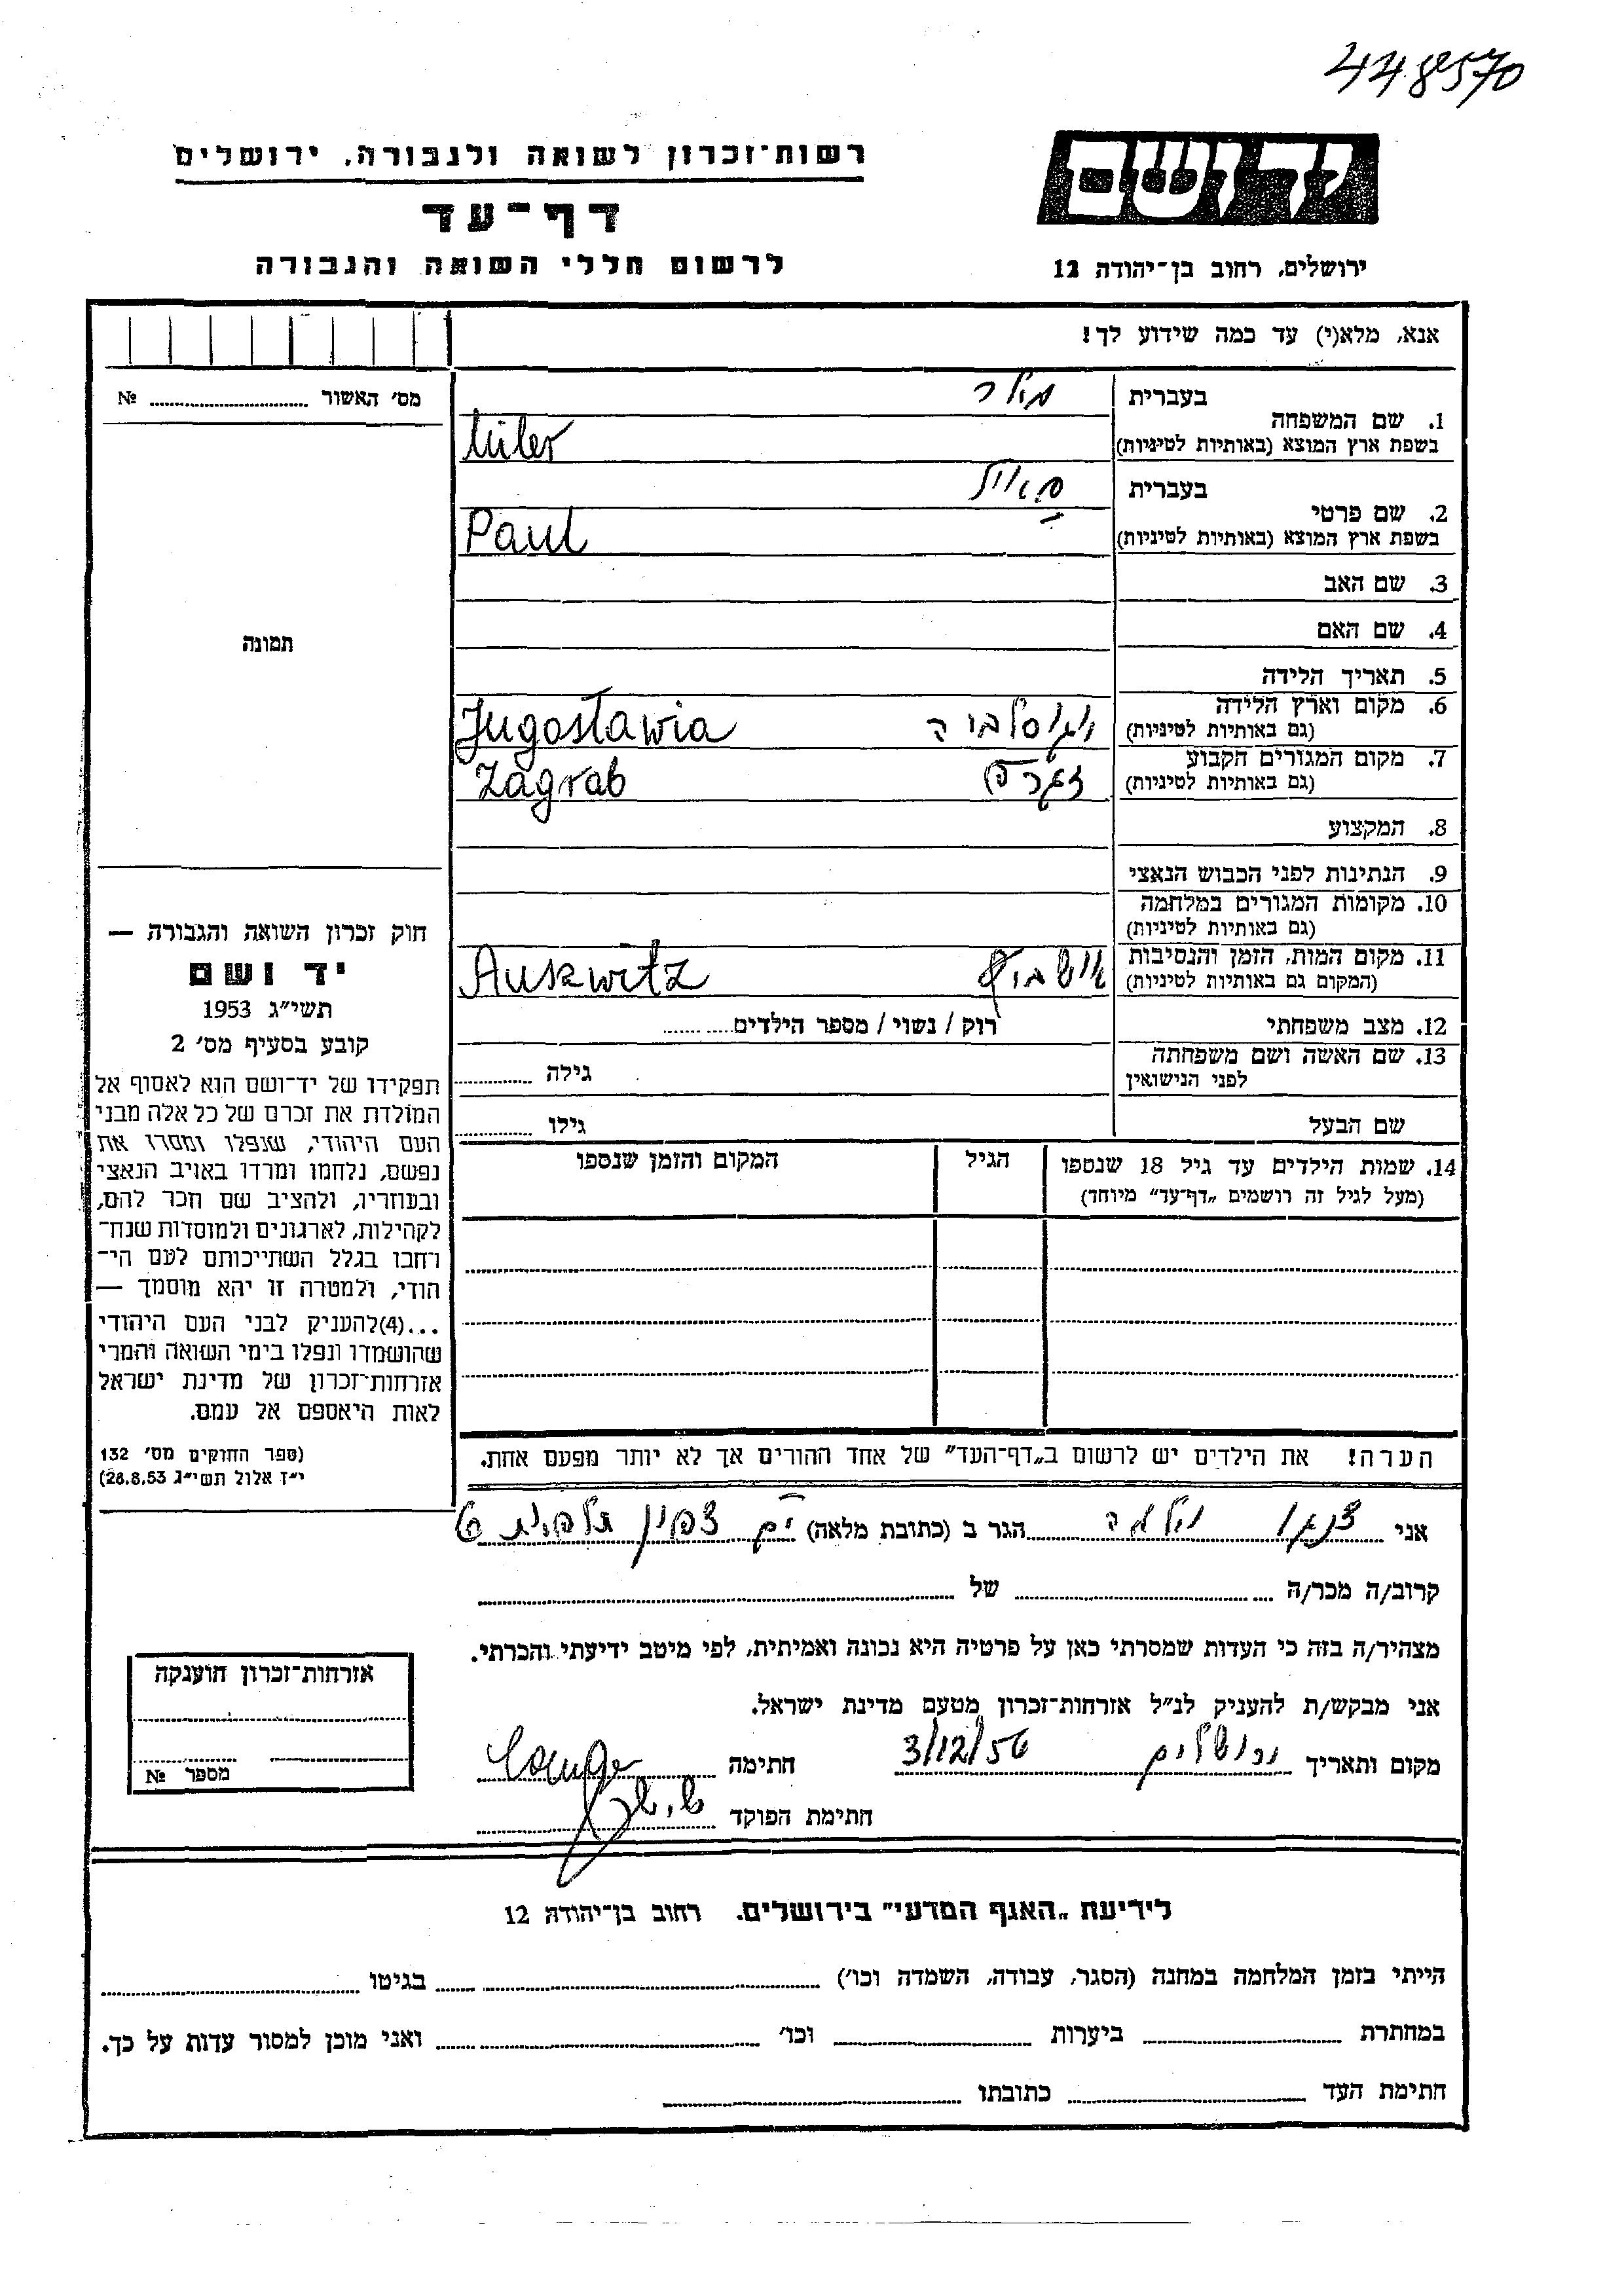 448570
יד ושם
רשות־זכרון לשואה ולגבורה, ירושלים
דף־עד
ירושלים, רחוב בן־יהודה 12
לרשום חללי השואה והגבורה
אנא, מלא(י) עד כמה שידוע לך!
מס׳ האשור № 
1. שם המשפחה
בעברית מילר
בשפת ארץ המוצא (באותיות לטיניות) Miler
2. שם פרטי
בעברית פאול
בשפת ארץ המוצא (באותיות לטיניות) Paul
3. שם האב
4. שם האם
תמונה
5. תאריך הלידה
6. מקום וארץ הלידה
(גם באותיות לטיניות) יוגוסלביה Jugosławia
7. מקום המגורים הקבוע
(גם באותיות לטיניות) זגרב Zagrab
8. המקצוע
9. הנתינות לפני הכבוש הנאצי
10. מקומות המגורים במלחמה
(גם באותיות לטיניות)
11. מקום המות, הזמן והנסיבות
(המקום גם באותיות לטיניות) אושביץ Auskwitz
12. מצב משפחתי רוק / נשוי / מספר הילדים
13. שם האשה ושם משפחתה
לפני הנישואין גילה
שם הבעל גילו
14. שמות הילדים עד גיל 18 שנספו הגיל המקום והזמן שנספו
(מעל לגיל זה רושמים „דף־עד״ מיוחד)
חוק זכרון השואה והגבורה —
יד ושם
תשי״ג 1953
קובע בסעיף מס׳ 2
תפקידו של יד־ושם הוא לאסוף אל
המולדת את זכרם של כל אלה מבני
העם היהודי, שנפלו ומסרו את
נפשם, נלחמו ומרדו באויב הנאצי
ובעוזריו, ולהציב שם וזכר להם,
לקהילות, לארגונים ולמוסדות שנח־
רחבו בגלל השתייכותם לעם הי־
הודי, ולמטרה זו יהא מוסמך —
...(4)להעניק לבני העם היהודי
שהושמדו ונפלו בימי השואה והמרי
אזרחות־זכרון של מדינת ישראל
לאות היאספם אל עמם.
(ספר החוקים מס׳ 132
י״ז אלול תשי״ג 28.8.53)
הערה! את הילדים יש לרשום ב„דף־העד״ של אחד ההורים אך לא יותר מפעם אחת.
אני הגר ב (כתובת מלאה) ים צפון תלפיות
קרוב/ה מכר/ה של
מצהיר/ה בזה כי העדות שמסרתי כאן על פרטיה היא נכונה ואמיתית, לפי מיטב ידיעתי והכרתי.
אני מבקש/ת להעניק לנ״ל אזרחות־זכרון מטעם מדינת ישראל.
מקום ותאריך ירושלים 3/12/56 חתימה
חתימת הפוקד
אזרחות־זכרון הוענקה
מספר №
לידיעת „האגף המדעי״ בירושלים. רחוב בן־יהודה 12
הייתי בזמן המלחמה במחנה (הסגר, עבודה, השמדה וכו׳) בגיטו
במחתרת ביערות וכו׳ ואני מוכן למסור עדות על כך.
חתימת העד כתובתו